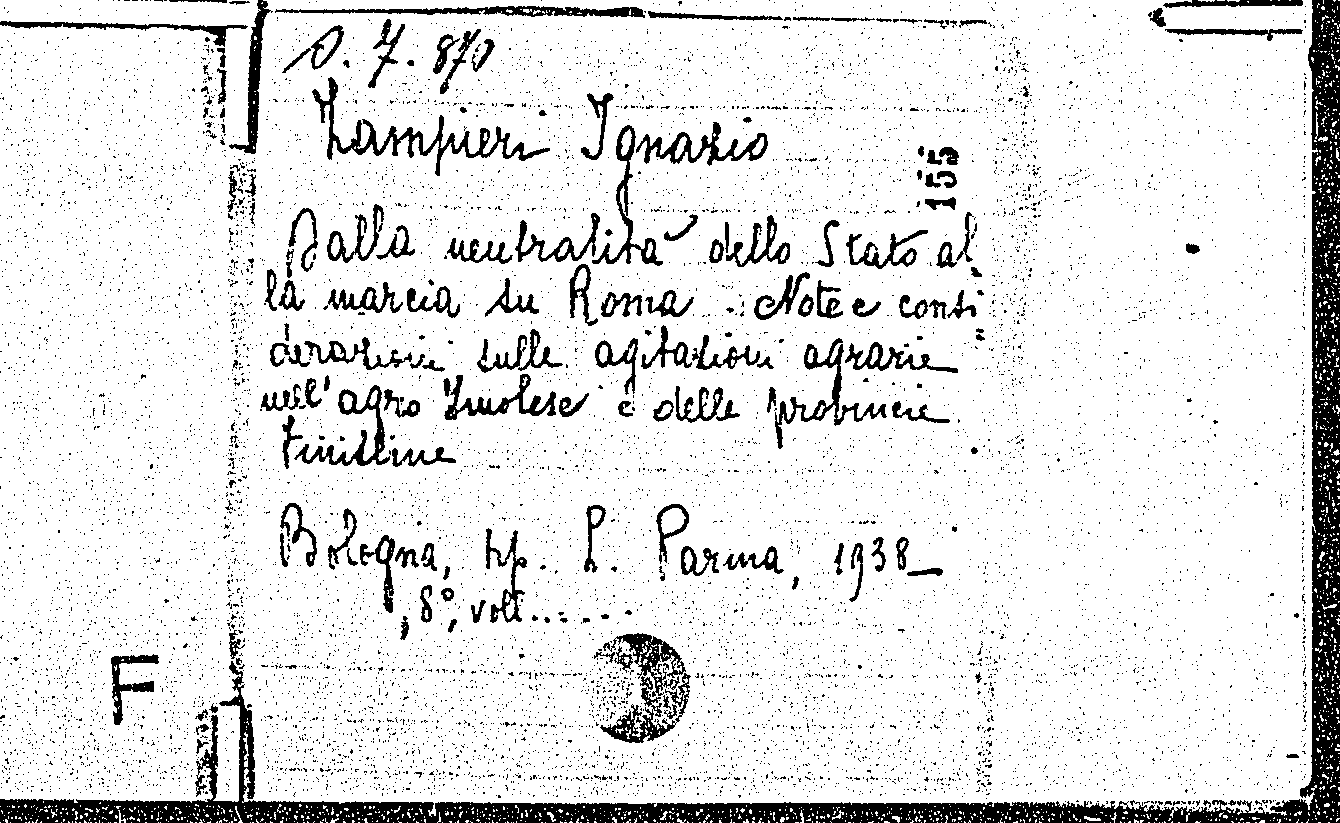 D. 7. 870
Zampieri Ignazio
155
Dalla neutralità dello Stato al
la marcia su Roma. Note e consi
derazioni sulle agitazioni agrarie
nell'agro Imolese e delle provincie
finitime
Bologna, tip. L. Parma, 1938_
, 8°, voll......
F